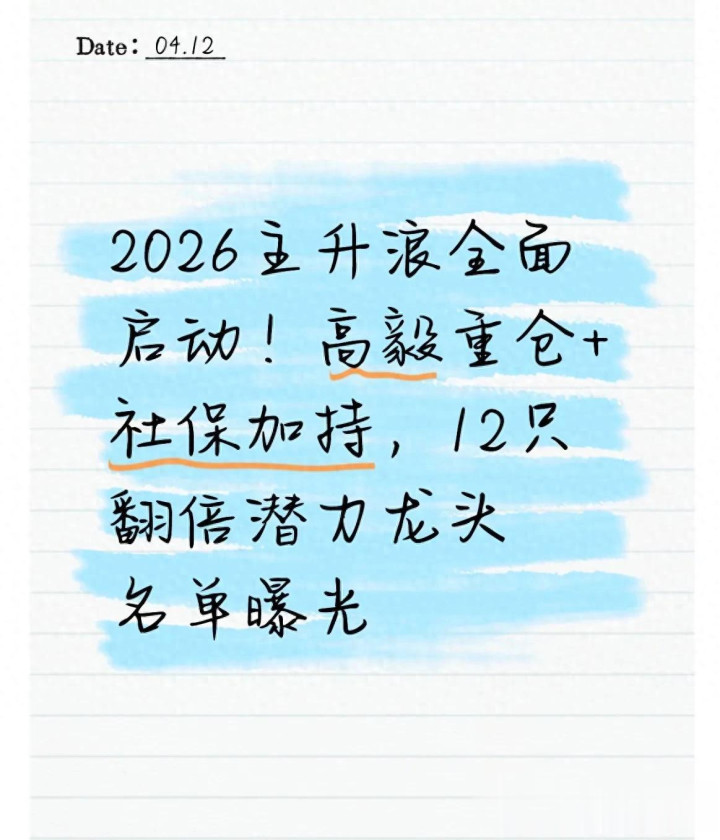 Date: 04.12
2026主升浪全面
启动！高毅重仓+
社保加持，12只
翻倍潜力龙头
名单曝光